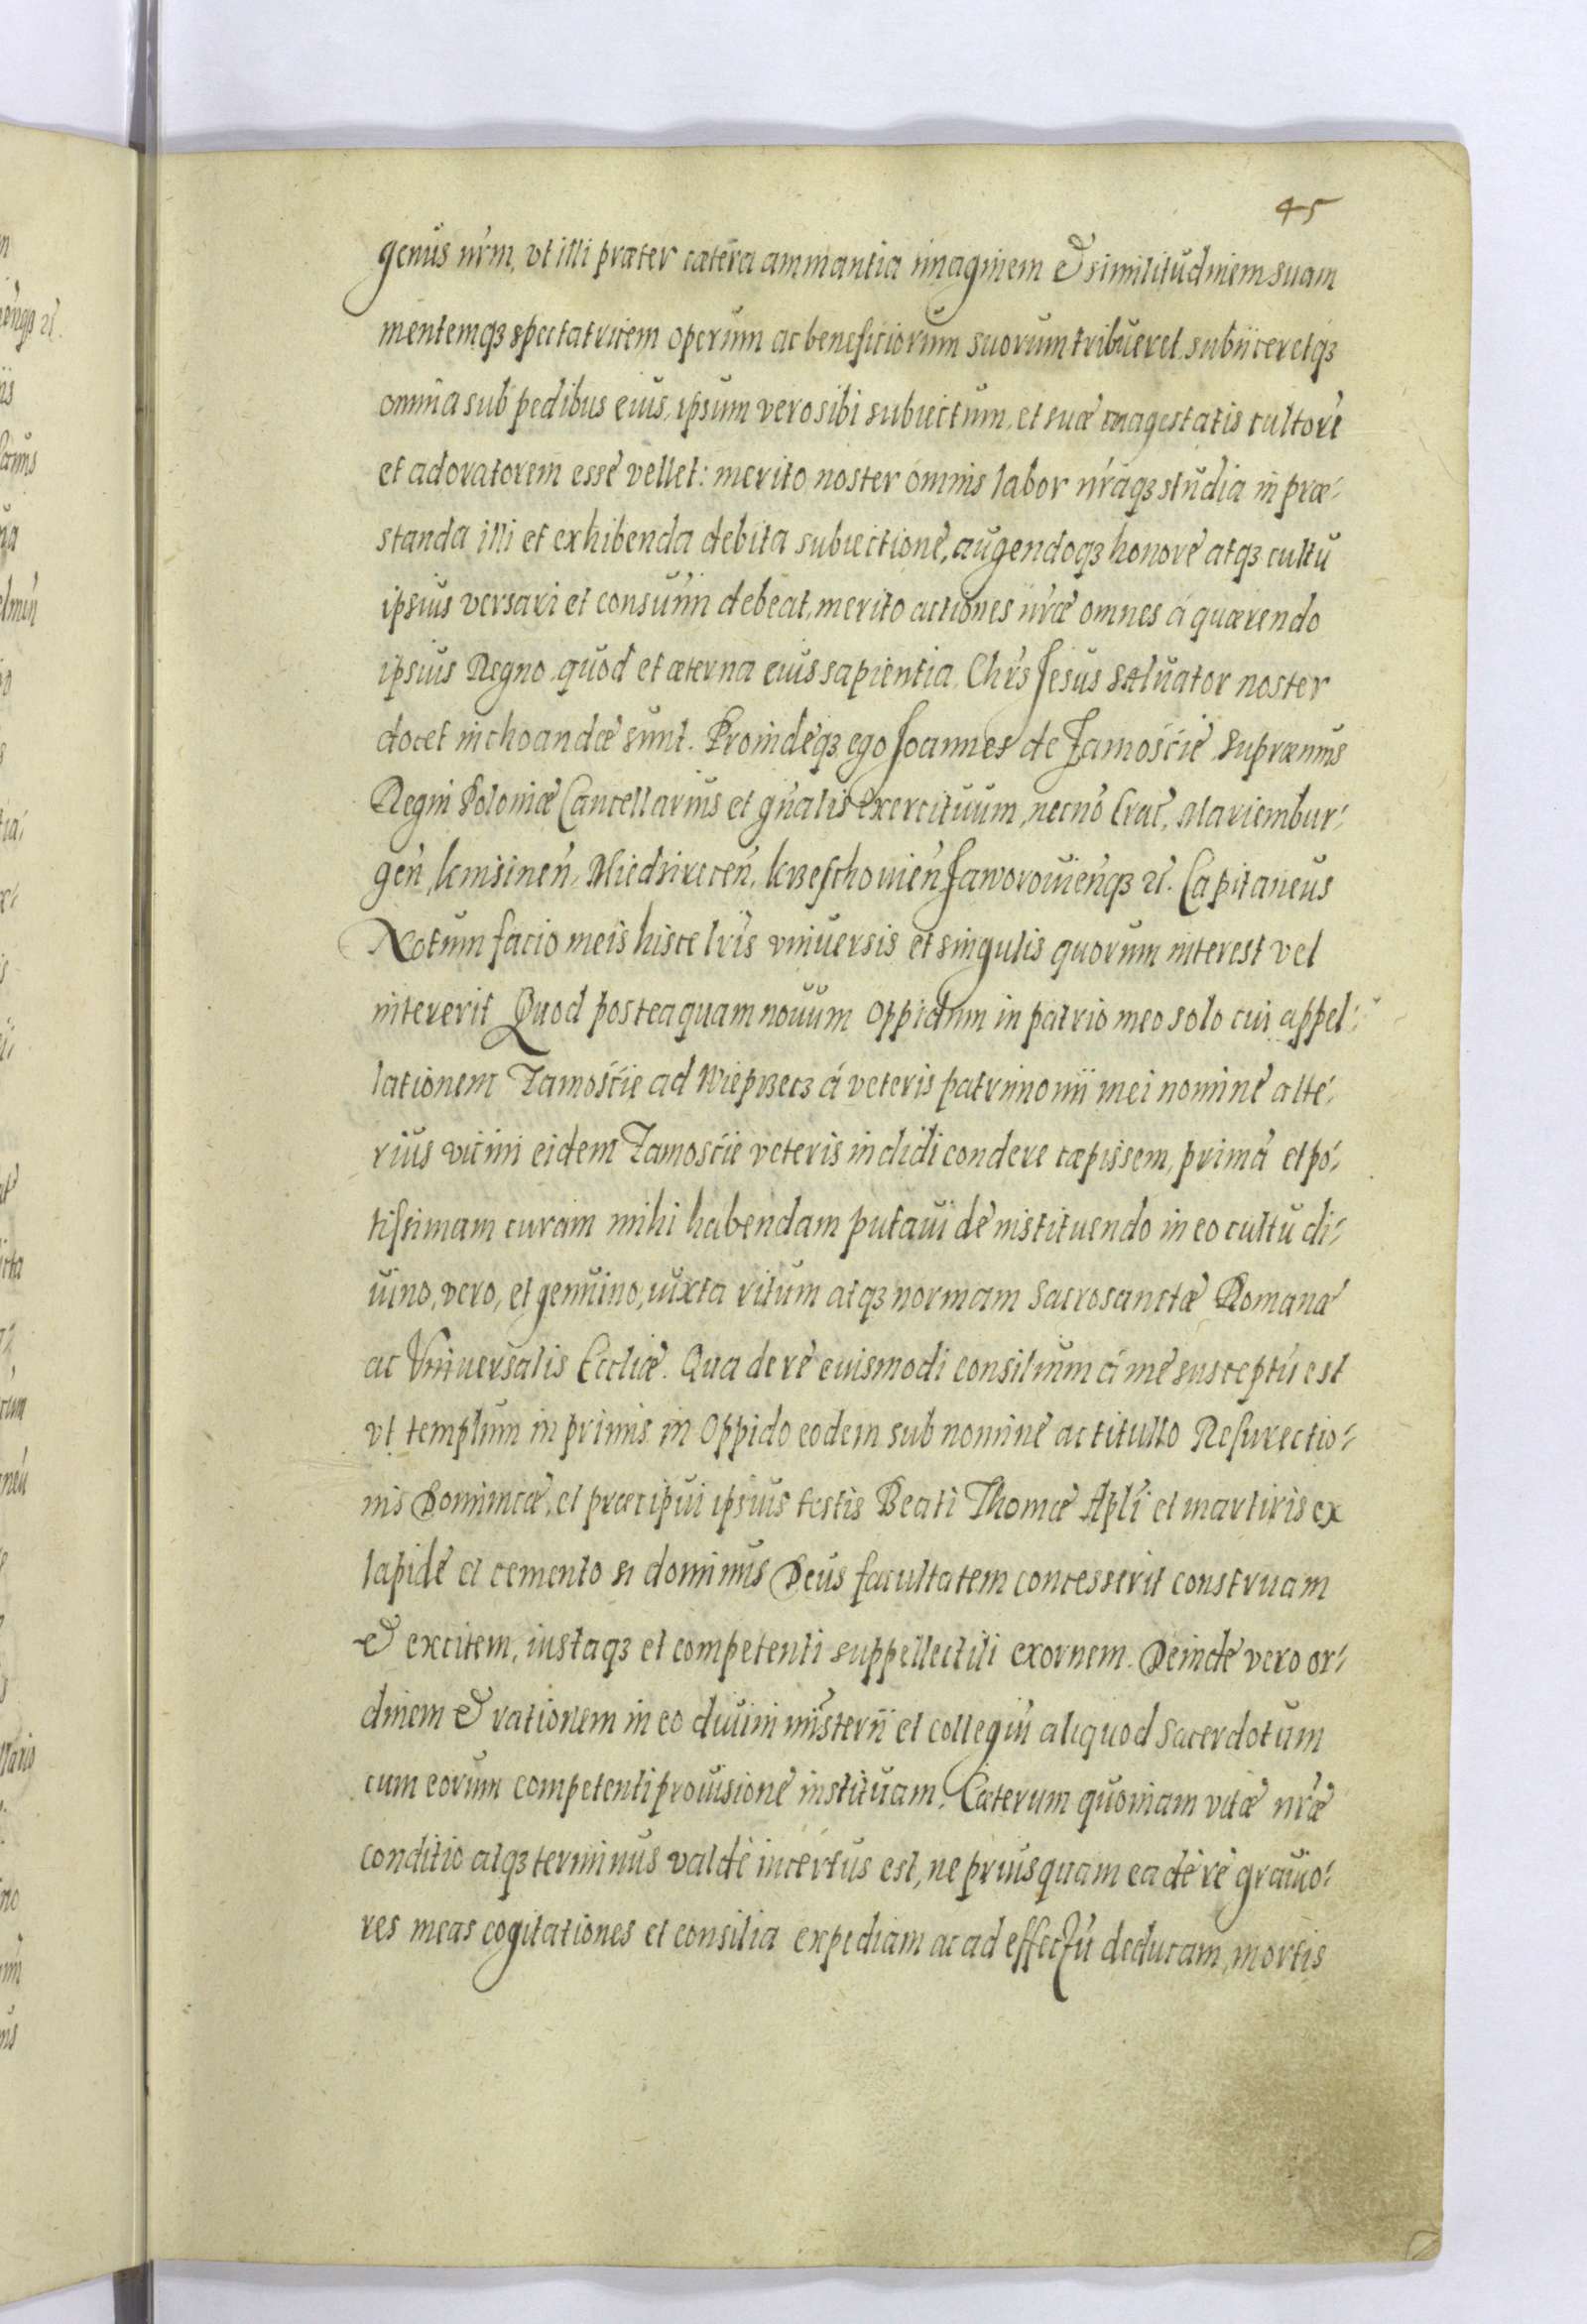 45
genus nrm, vt illi præter cætera animantia imaginem & similitudinem suam
mentemq3 spectatricem operum ac beneficiorum suorum tribueret subiiceretq3
omnia sub pedibus eius, ipsum vero sibi subiectum, et suæ magestatis cultorē
et adoratorem esse vellet: merito noster omnis labor nraq3 studia in præ-
standa illi et exhibenda debita subiectione, augendoq3 honore atq3 cultu
ipsius versari et consumi debeat, merito actiones nræ omnes á quærendo
ipsius Regno quod et æterna eius sapientia Chrs Jesus Saluator noster
docet inchoandæ sunt. Proindeq3 ego Joannes de Zamoscie Supræmus
Regni Poloniæ Cancellarius et gnalis exercituum, necnō Crac, Mariembur-
gen, knisinen, Miedzirecen, krzeschouien Jaworouienq3 zc. Capitaneus
Notum facio meis hisce lris vniuersis et singulis quorum interest vel
intererit Quod posteaquam nouum oppidum in patrio meo solo cui appel-
lationem Zamoscie ad Wieprzecz á veteris patrimonii mei nomine alte-
rius vicini eidem Zamoscie veteris indidi condere cæpissem, primā et po-
tissimam curam mihi habendam putaui de instituendo in eo cultu di-
uino, vero, et genuino, iuxta ritum atq3 normam Sacrosanctæ Romanæ
ac Vniuersalis Eccliæ. Qua de re euismodi consilium á me susceptū est
vt templum in primis in Oppido eodem sub nomine ac titullo Resurectio-
nis Dominicæ, et præcipui ipsius testis Beati Thomæ Apli et martiris ex
lapide et cemento si dominus Deus facultatem concesserit construam
& excitem, iustaq3 et competenti suppellectili exornem. Deinde vero or-
dinem & rationem in eo diuini misterii et collegiū aliquod Sacerdotum
cum eorum competenti prouisione instituam. Cæterum quoniam vitæ nræ
conditio atq3 terminus valde incertus est, ne priusquam ea de re grauio-
res meas cogitationes et consilia expediam ac ad effectū deducam, mortis